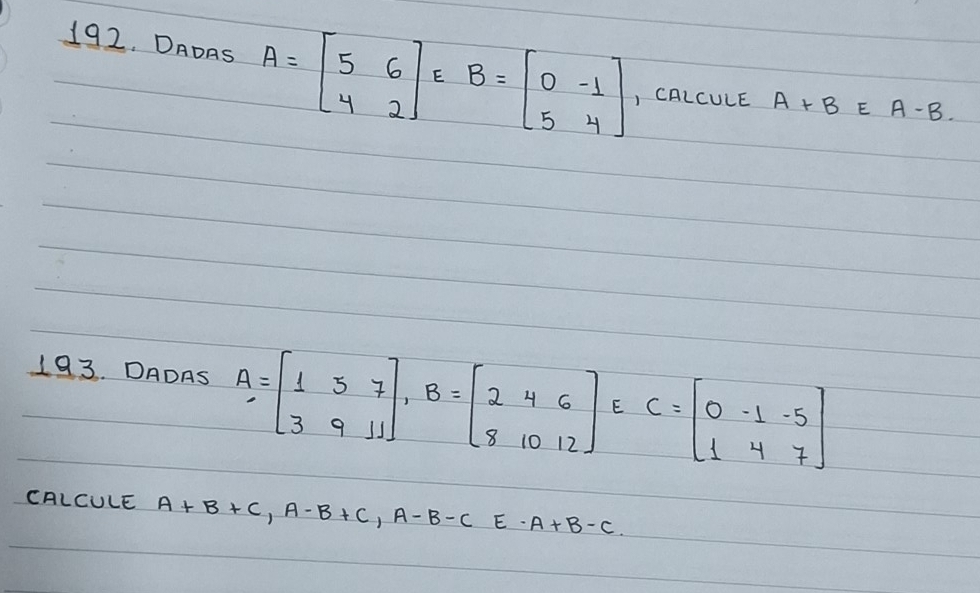 192. DADAS A = [5 6 4 2] E B = [0 -1 5 4], CALCULE A + B E A - B.
193. DADAS A = [1 5 7 3 9 11], B = [2 4 6 8 10 12] E C = [0 -1 -5 1 4 7]
CALCULE A + B + C, A - B + C, A - B - C E -A + B - C.